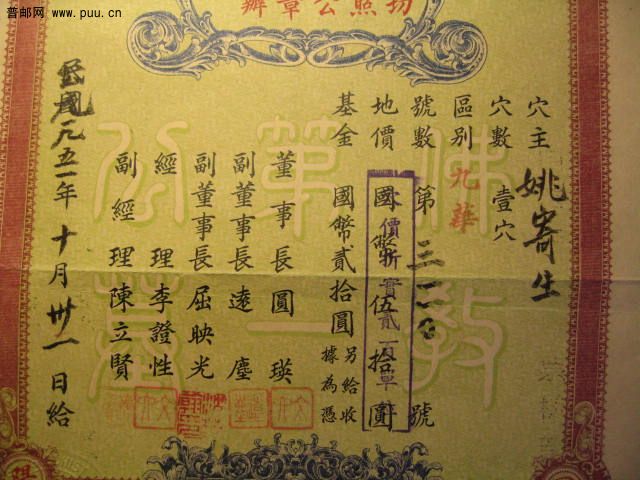 普邮网 www.puu.cn
照公章辦
穴主 姚寄生
穴數 壹穴
區別 九華
號數 第 號
地價 國幣伍拾圓
價折實貳百單
基金 國幣貳拾圓 另給收據為憑
董事長圓瑛
副董事長遠塵
副董事長屈映光
經理李證性
副經理陳立賢
民國元五一年十月卅一日給
佛教第一公墓